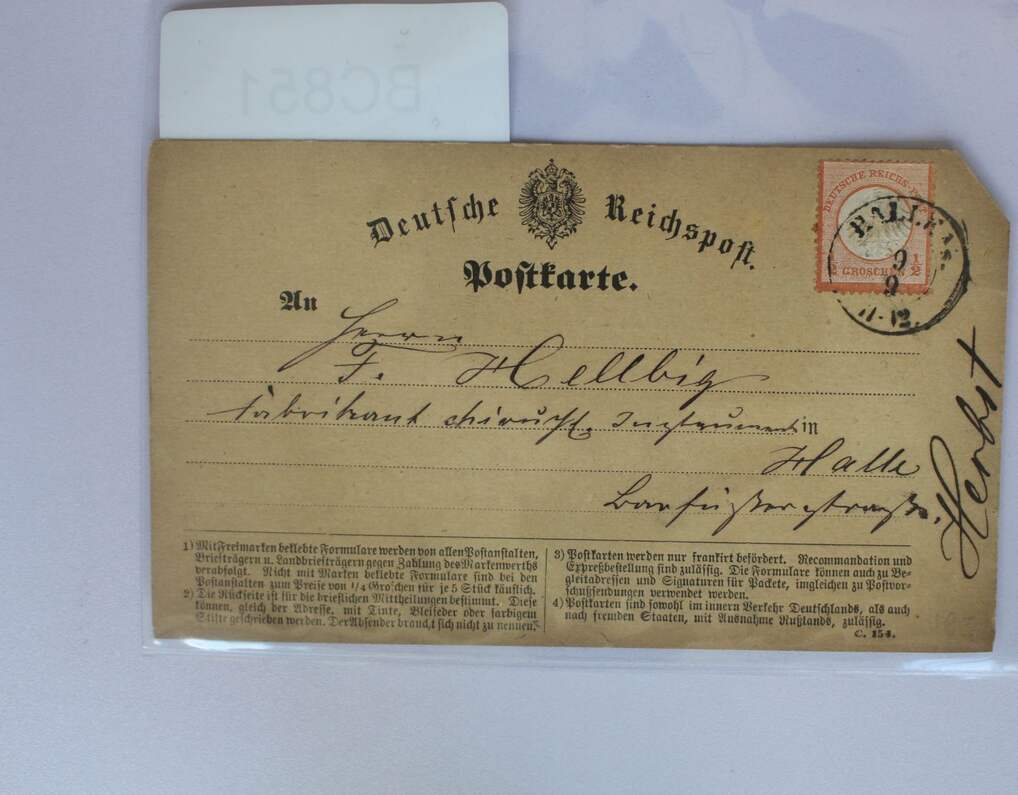 BC851
Deutsche Reichspost.
Postkarte.
DEUTSCHE REICHS-P
½ GROSCHEN ½
HALLE A/S.
9
9
11-12.
An
Herrn
F. Hellbig
Fabrikant chirurg. Instrument in
Halle
Barfüsserstrasse.
Herbst
1) Mit Freimarken beklebte Formulare werden von allen Postanstalten,
Briefträgern u. Landbriefträgern gegen Zahlung des Markenwerths
verabfolgt. Nicht mit Marken beklebte Formulare sind bei den
Postanstalten zum Preise von 1/4 Groschen für je 5 Stück käuflich.
2) Die Rückseite ist für die brieflichen Mittheilungen bestimmt. Diese
können, gleich der Adresse, mit Tinte, Bleifeder oder farbigem
Stifte geschrieben werden. Der Absender braucht sich nicht zu nennen.
3) Postkarten werden nur frankirt befördert. Recommandation und
Expreßbestellung sind zulässig. Die Formulare können auch zu Be-
gleitadressen und Signaturen für Packete, imgleichen zu Postvor-
schußsendungen verwendet werden.
4) Postkarten sind sowohl im innern Verkehr Deutschlands, als auch
nach fremden Staaten, mit Ausnahme Rußlands, zulässig.
C. 154.